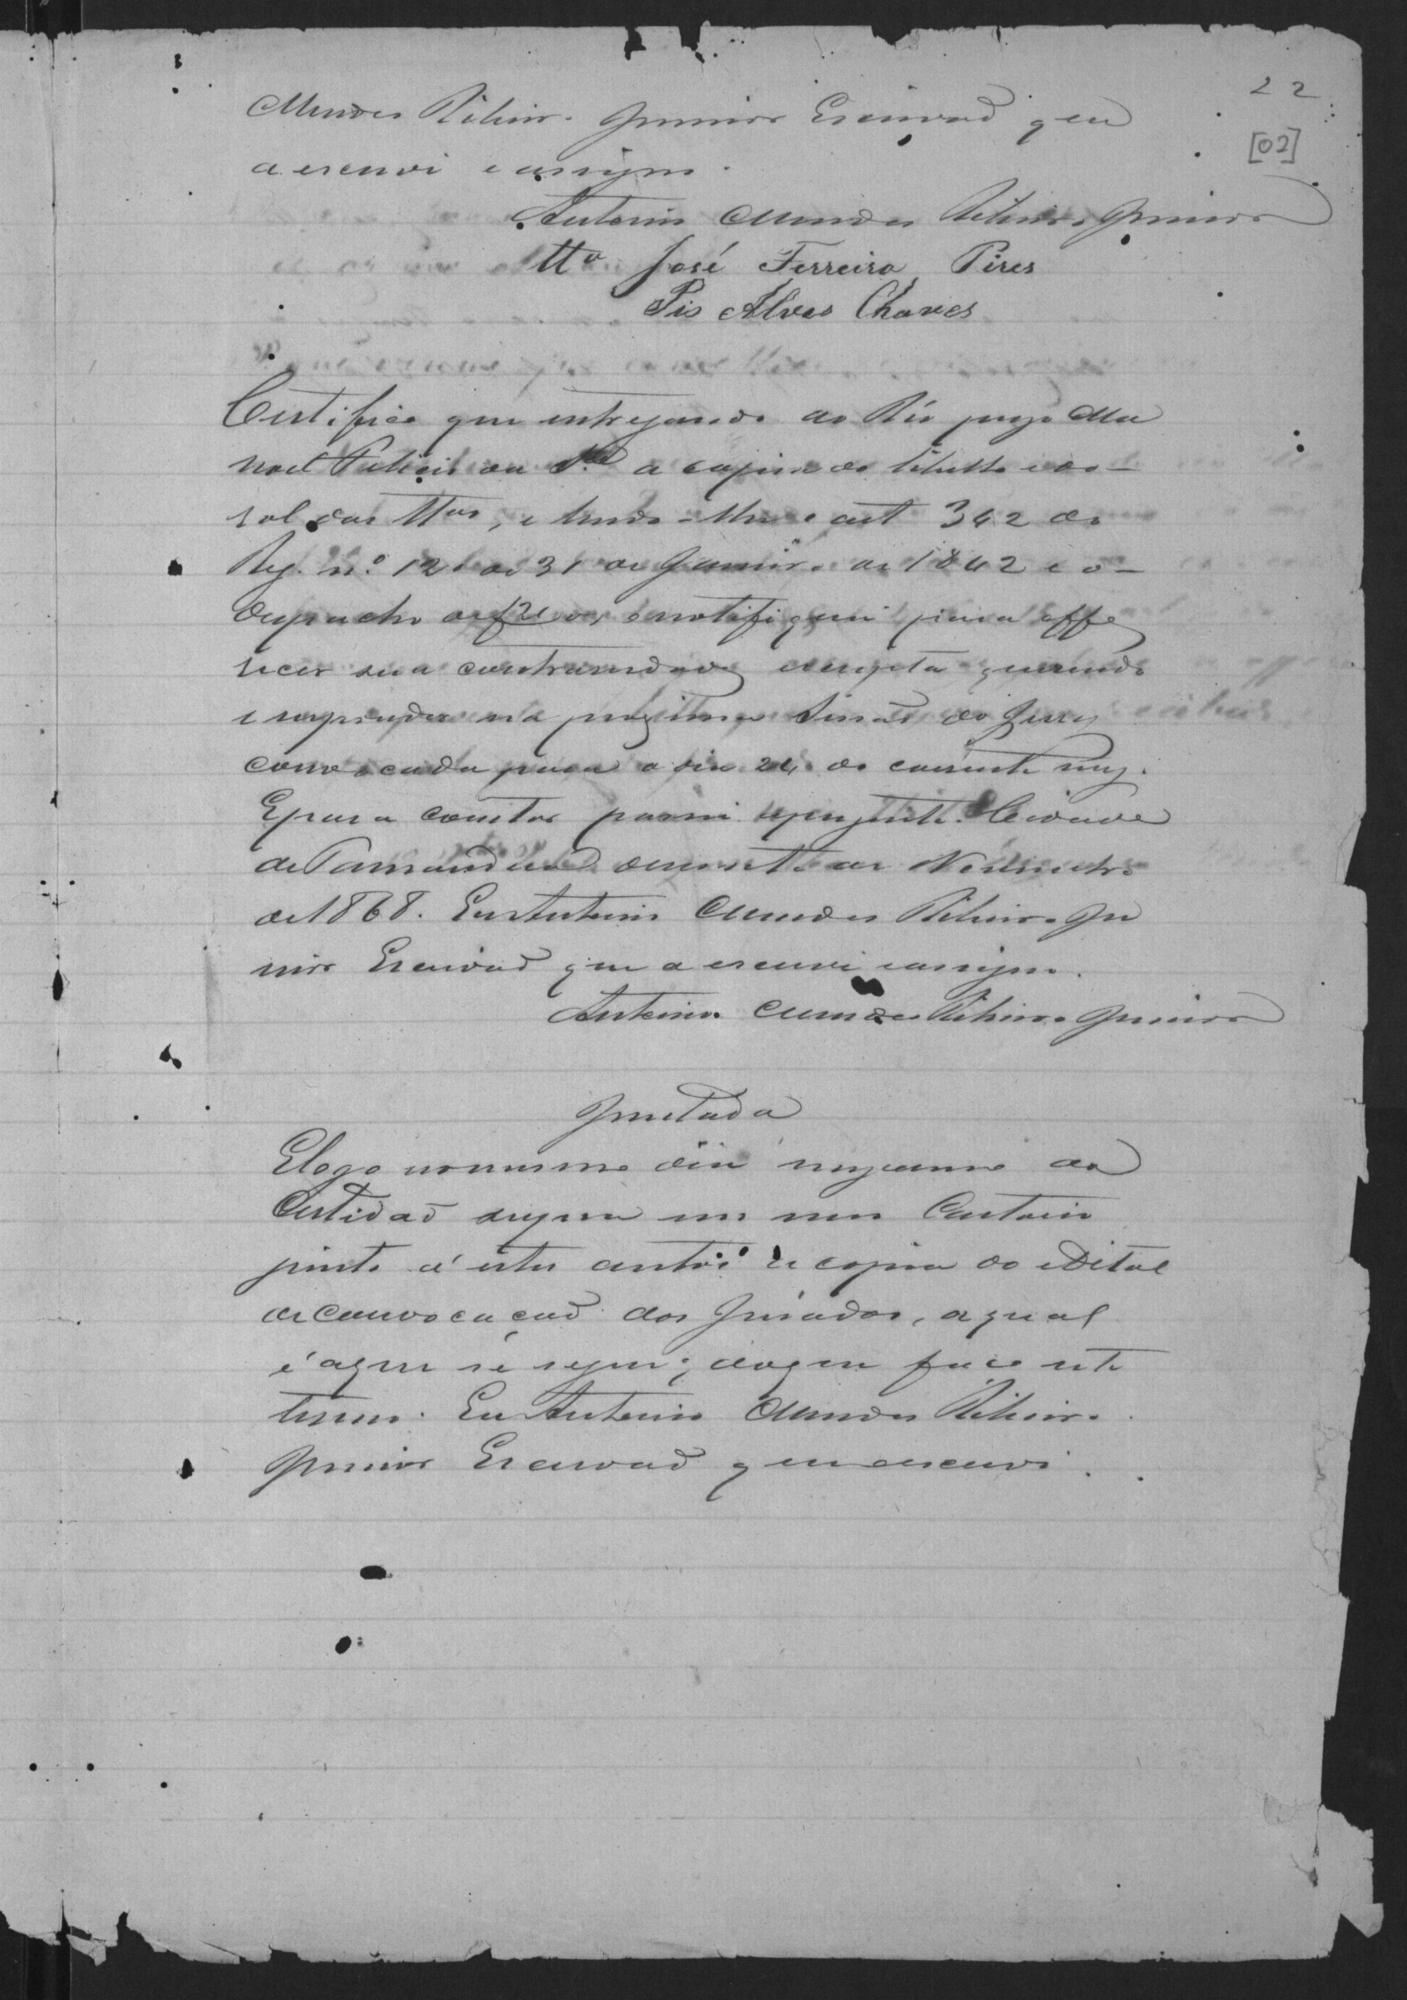 22
[02]
Mendes Ribeiro Junior Escrivaõ que
a escrevi e assigno.
Antonio Mendes Ribeiro Junior
Tta José Ferreira Pires
Pio Alves Chaves
Certifico que entregando ao Réo prezo Ma
noel a copia do libello e do
rol das Ttas, e lendo-lhe o art 342 do
Reg. nº 120 de 31 de Janeiro de 1842 e o
despacho de f 21 o notifiquei para offe
recer sua contrariedade escripta querendo
e responder na proxima Sessaõ do Jury
convocada para o dia 24 do corrente mez.
E para constar passei a prezente. Cidade
de Tamanduá de Novembro
de 1868. Eu Antonio Mendes Ribeiro Ju
nior Escrivaõ que a escrevi e assigno.
Antonio Mendes Ribeiro Junior
Juntada
E logo no mesmo dia mez e anno da
Certidaõ supra em meu Cartorio
junto á estes autos a copia do edital
de convocaçaõ dos Jurados, a qual
é a que se segue; do que faço este
termo. Eu Antonio Mendes Ribeiro
Junior Escrivaõ que o escrevi.